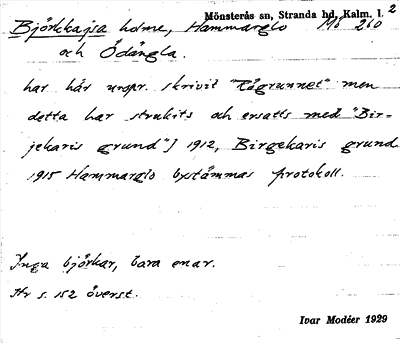 Mönsterås sn, Stranda hd, Kalm. l. 2
Björkkajsa holme, Hammarglo Mö 260
och Ödängla.
har här urspr. skrivit "Rågrunnet" men
detta har strukits och ersatts med "Bir-
jekaris grund"] 1912, Birgekaris grund
1915 Hammarglo bystämmas protokoll.
Inga björkar, bara enar.
Hr s. 152 överst.
Ivar Modéer 1929